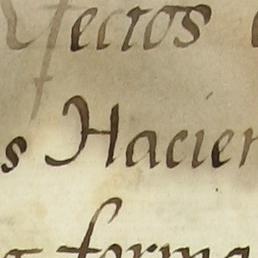 fectos
s Hacien
forma